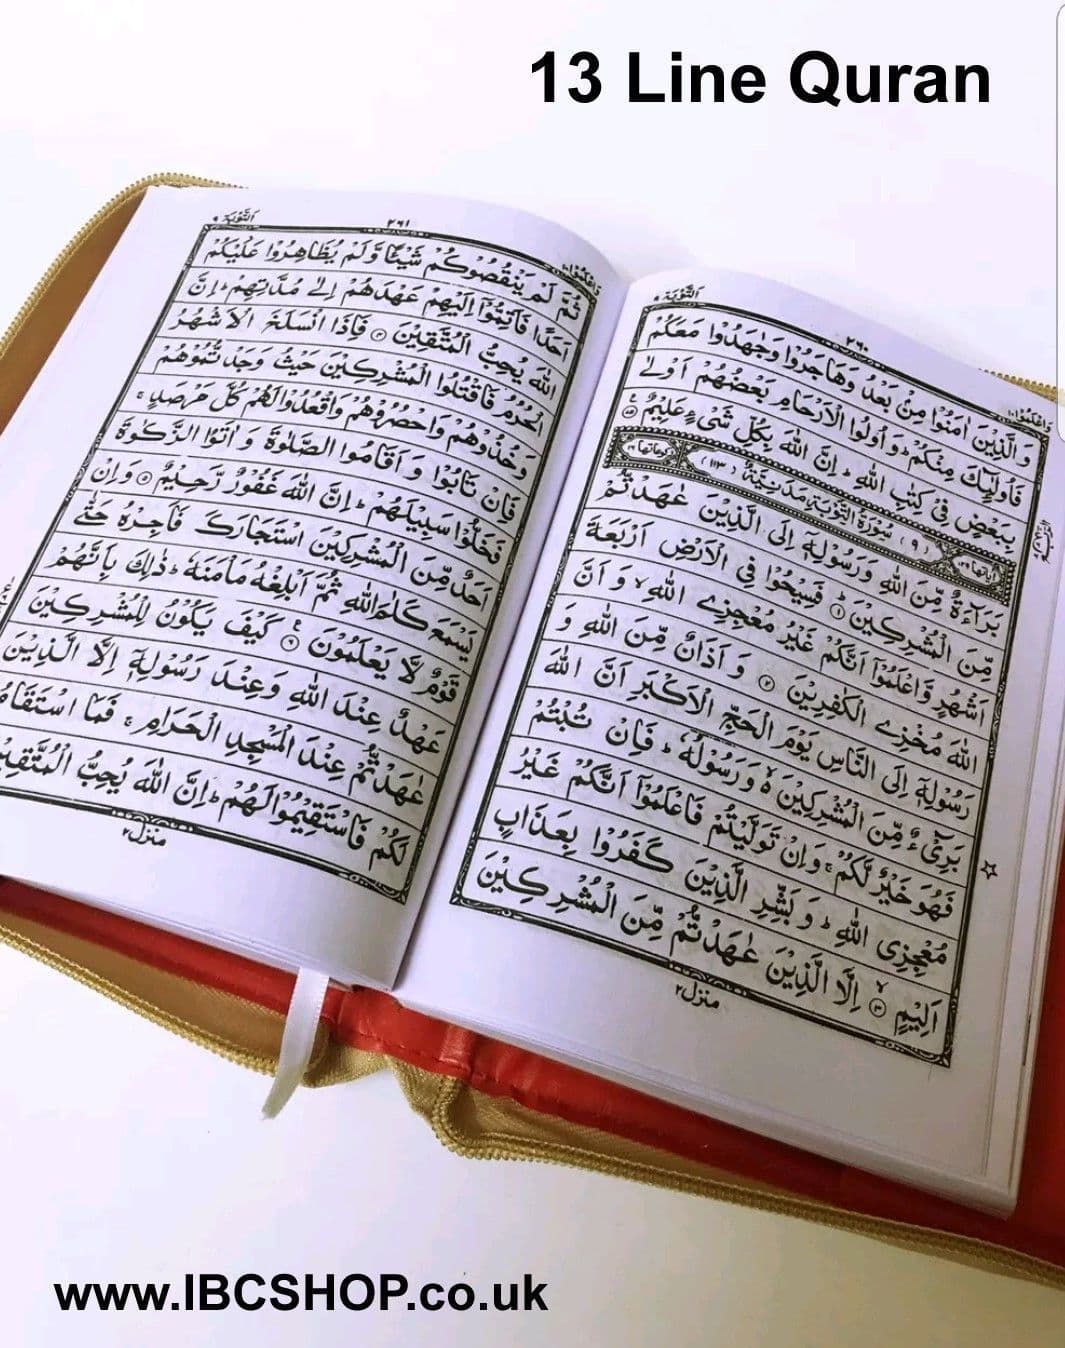 13 Line Quran
وَاعْلَمُوْٓا ١٠
٢٦٠
اَلتَّوْبَة ٩
وَالَّذِيْنَ اٰمَنُوْا مِنْۢ بَعْدُ وَهَاجَرُوْا وَجٰهَدُوْا مَعَكُمْ
فَاُولٰٓئِكَ مِنْكُمْ ؕ وَاُولُوا الْاَرْحَامِ بَعْضُهُمْ اَوْلٰى
بِبَعْضٍ فِيْ كِتٰبِ اللّٰهِ ؕ اِنَّ اللّٰهَ بِكُلِّ شَيْءٍ عَلِيْمٌ ﴿٧٥﴾
اٰيَاتُهَا ١٢٩ (٩) سُوْرَةُ التَّوْبَةِ مَدَنِيَّةٌ (١١٣) رُكُوْعَاتُهَا ١٦
بَرَآءَةٌ مِّنَ اللّٰهِ وَرَسُوْلِهٖٓ اِلَى الَّذِيْنَ عٰهَدْتُّمْ
مِّنَ الْمُشْرِكِيْنَ ﴿١﴾ فَسِيْحُوْا فِي الْاَرْضِ اَرْبَعَةَ
اَشْهُرٍ وَّاعْلَمُوْٓا اَنَّكُمْ غَيْرُ مُعْجِزِي اللّٰهِ ۙ وَاَنَّ
اللّٰهَ مُخْزِي الْكٰفِرِيْنَ ﴿٢﴾ وَاَذَانٌ مِّنَ اللّٰهِ وَ
رَسُوْلِهٖٓ اِلَى النَّاسِ يَوْمَ الْحَجِّ الْاَكْبَرِ اَنَّ اللّٰهَ
بَرِيْٓءٌ مِّنَ الْمُشْرِكِيْنَ ۙ۬ وَرَسُوْلُهٗ ؕ فَاِنْ تُبْتُمْ
فَهُوَ خَيْرٌ لَّكُمْ ۚ وَاِنْ تَوَلَّيْتُمْ فَاعْلَمُوْٓا اَنَّكُمْ غَيْرُ
مُعْجِزِي اللّٰهِ ؕ وَبَشِّرِ الَّذِيْنَ كَفَرُوْا بِعَذَابٍ
اَلِيْمٍ ﴿٣﴾ اِلَّا الَّذِيْنَ عٰهَدْتُّمْ مِّنَ الْمُشْرِكِيْنَ
منزل ٢
وَاعْلَمُوْٓا ١٠
٢٦١
اَلتَّوْبَة ٩
ثُمَّ لَمْ يَنْقُصُوْكُمْ شَيْـًٔا وَّلَمْ يُظَاهِرُوْا عَلَيْكُمْ
اَحَدًا فَاَتِمُّوْٓا اِلَيْهِمْ عَهْدَهُمْ اِلٰى مُدَّتِهِمْ ؕ اِنَّ
اللّٰهَ يُحِبُّ الْمُتَّقِيْنَ ﴿٤﴾ فَاِذَا انْسَلَخَ الْاَشْهُرُ
الْحُرُمُ فَاقْتُلُوا الْمُشْرِكِيْنَ حَيْثُ وَجَدْتُّمُوْهُمْ
وَخُذُوْهُمْ وَاحْصُرُوْهُمْ وَاقْعُدُوْا لَهُمْ كُلَّ مَرْصَدٍ ۚ
فَاِنْ تَابُوْا وَاَقَامُوا الصَّلٰوةَ وَاٰتَوُا الزَّكٰوةَ
فَخَلُّوْا سَبِيْلَهُمْ ؕ اِنَّ اللّٰهَ غَفُوْرٌ رَّحِيْمٌ ﴿٥﴾ وَاِنْ
اَحَدٌ مِّنَ الْمُشْرِكِيْنَ اسْتَجَارَكَ فَاَجِرْهُ حَتّٰى
يَسْمَعَ كَلٰمَ اللّٰهِ ثُمَّ اَبْلِغْهُ مَاْمَنَهٗ ؕ ذٰلِكَ بِاَنَّهُمْ
قَوْمٌ لَّا يَعْلَمُوْنَ ﴿٦﴾ كَيْفَ يَكُوْنُ لِلْمُشْرِكِيْنَ
عَهْدٌ عِنْدَ اللّٰهِ وَعِنْدَ رَسُوْلِهٖٓ اِلَّا الَّذِيْنَ
عٰهَدْتُّمْ عِنْدَ الْمَسْجِدِ الْحَرَامِ ۚ فَمَا اسْتَقَامُوْا
لَكُمْ فَاسْتَقِيْمُوْا لَهُمْ ؕ اِنَّ اللّٰهَ يُحِبُّ الْمُتَّقِيْنَ
منزل ٢
www.IBCSHOP.co.uk